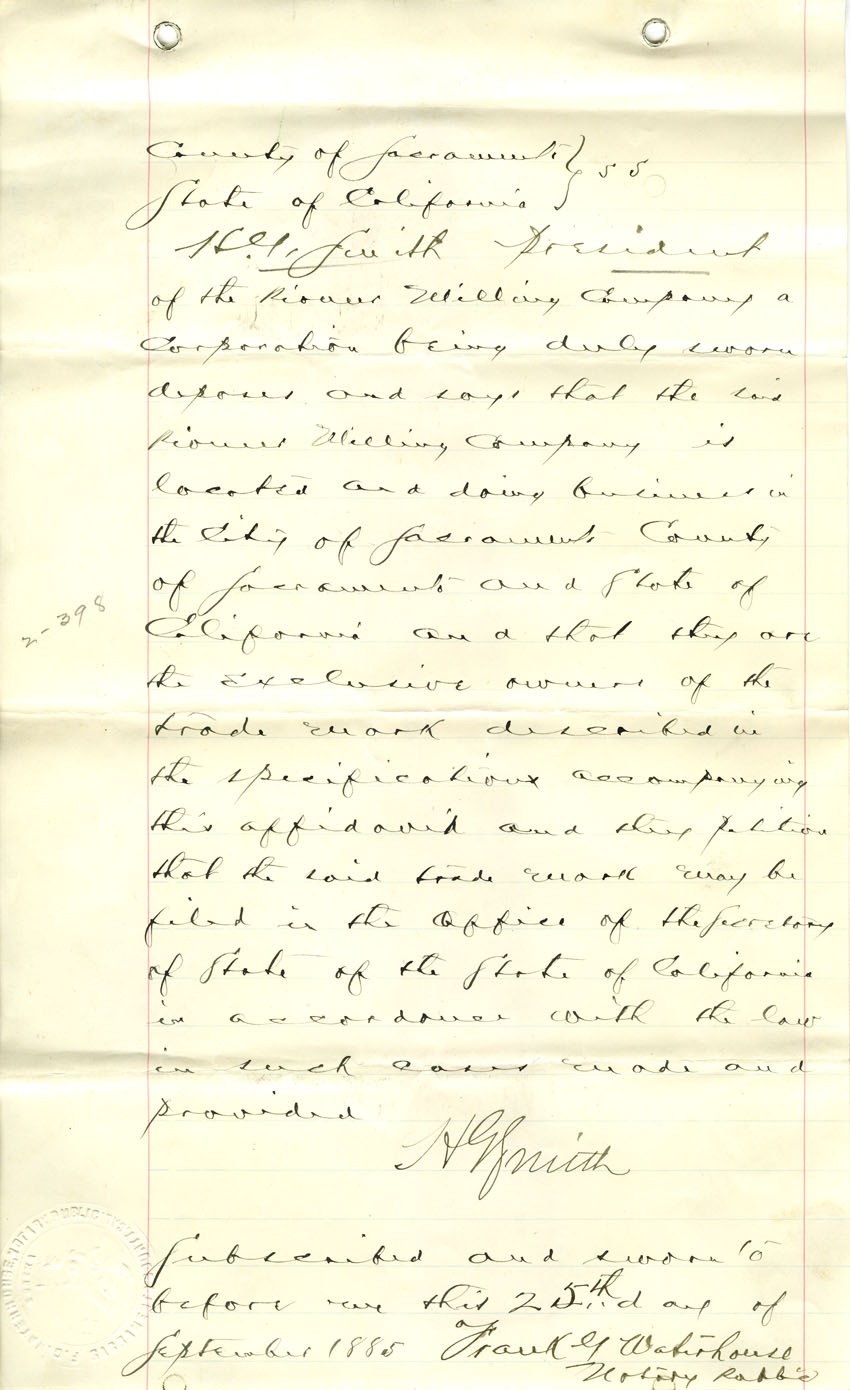 County of Sacramento } ss
State of California
H. G. Smith President
of the Pioneer Milling Company a
Corporation being duly sworn
deposes and says that the said
Pioneer Milling Company is
located and doing business in
the City of Sacramento County
of Sacramento and State of
California and that they are
the exclusive owners of the
trade mark described in
the specifications accompanying
this affidavid and they petition
that the said trade mark may be
filed in the office of the Secretary
of State of the State of California
in accordance with the law
in such cases made and
provided
H G Smith
Subscribed and sworn to
before me this 25th. day of
September 1885 Frank G Waterhouse
Notary Public
2-398